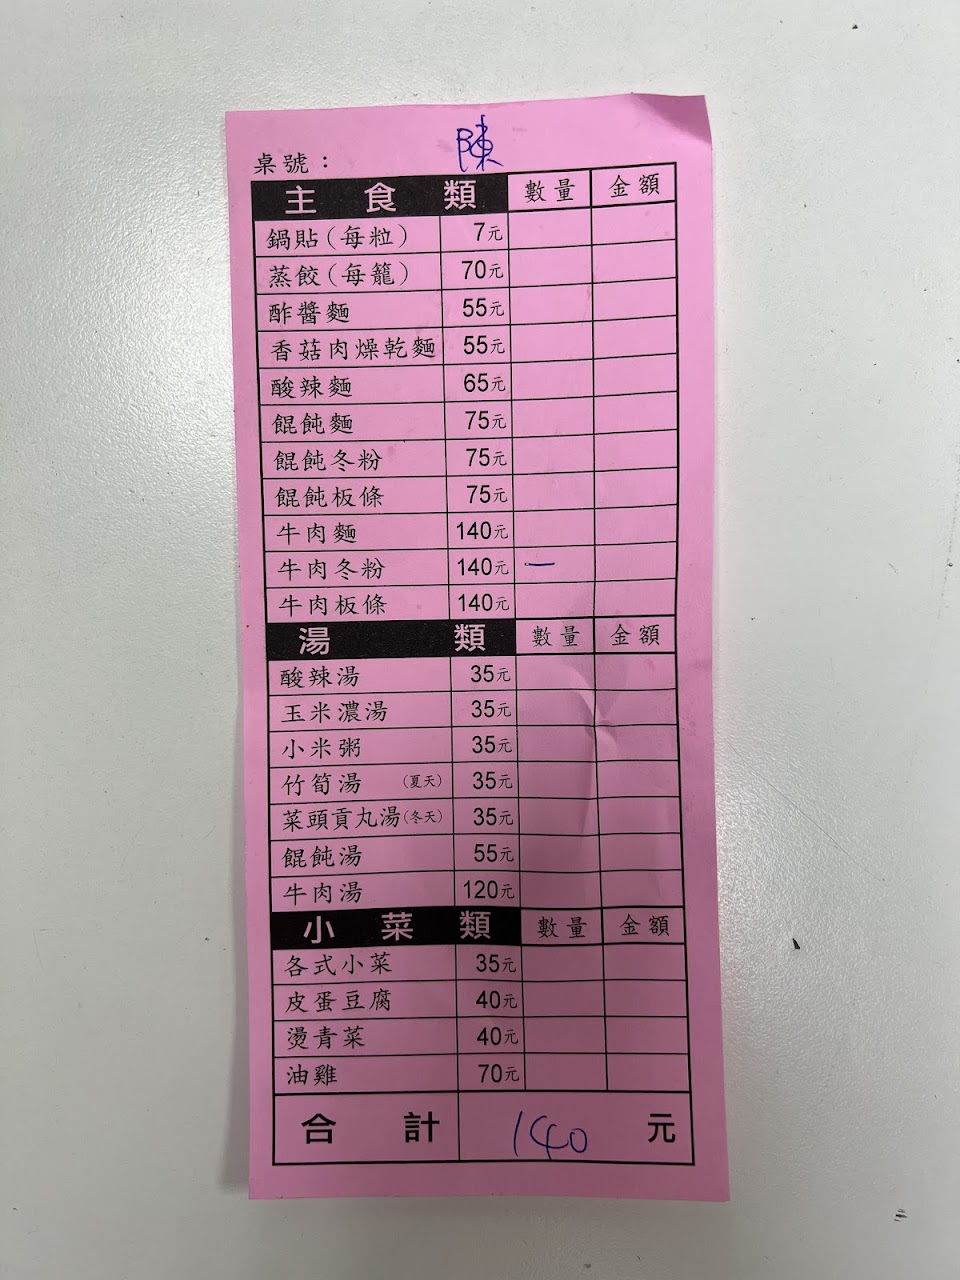 陳
桌號：
主食類 數量 金額
鍋貼(每粒) 7元
蒸餃(每籠) 70元
酢醬麵 55元
香菇肉燥乾麵 55元
酸辣麵 65元
餛飩麵 75元
餛飩冬粉 75元
餛飩板條 75元
牛肉麵 140元
牛肉冬粉 140元 一
牛肉板條 140元
湯類 數量 金額
酸辣湯 35元
玉米濃湯 35元
小米粥 35元
竹筍湯 (夏天) 35元
菜頭貢丸湯(冬天) 35元
餛飩湯 55元
牛肉湯 120元
小菜類 數量 金額
各式小菜 35元
皮蛋豆腐 40元
燙青菜 40元
油雞 70元
合計 140 元